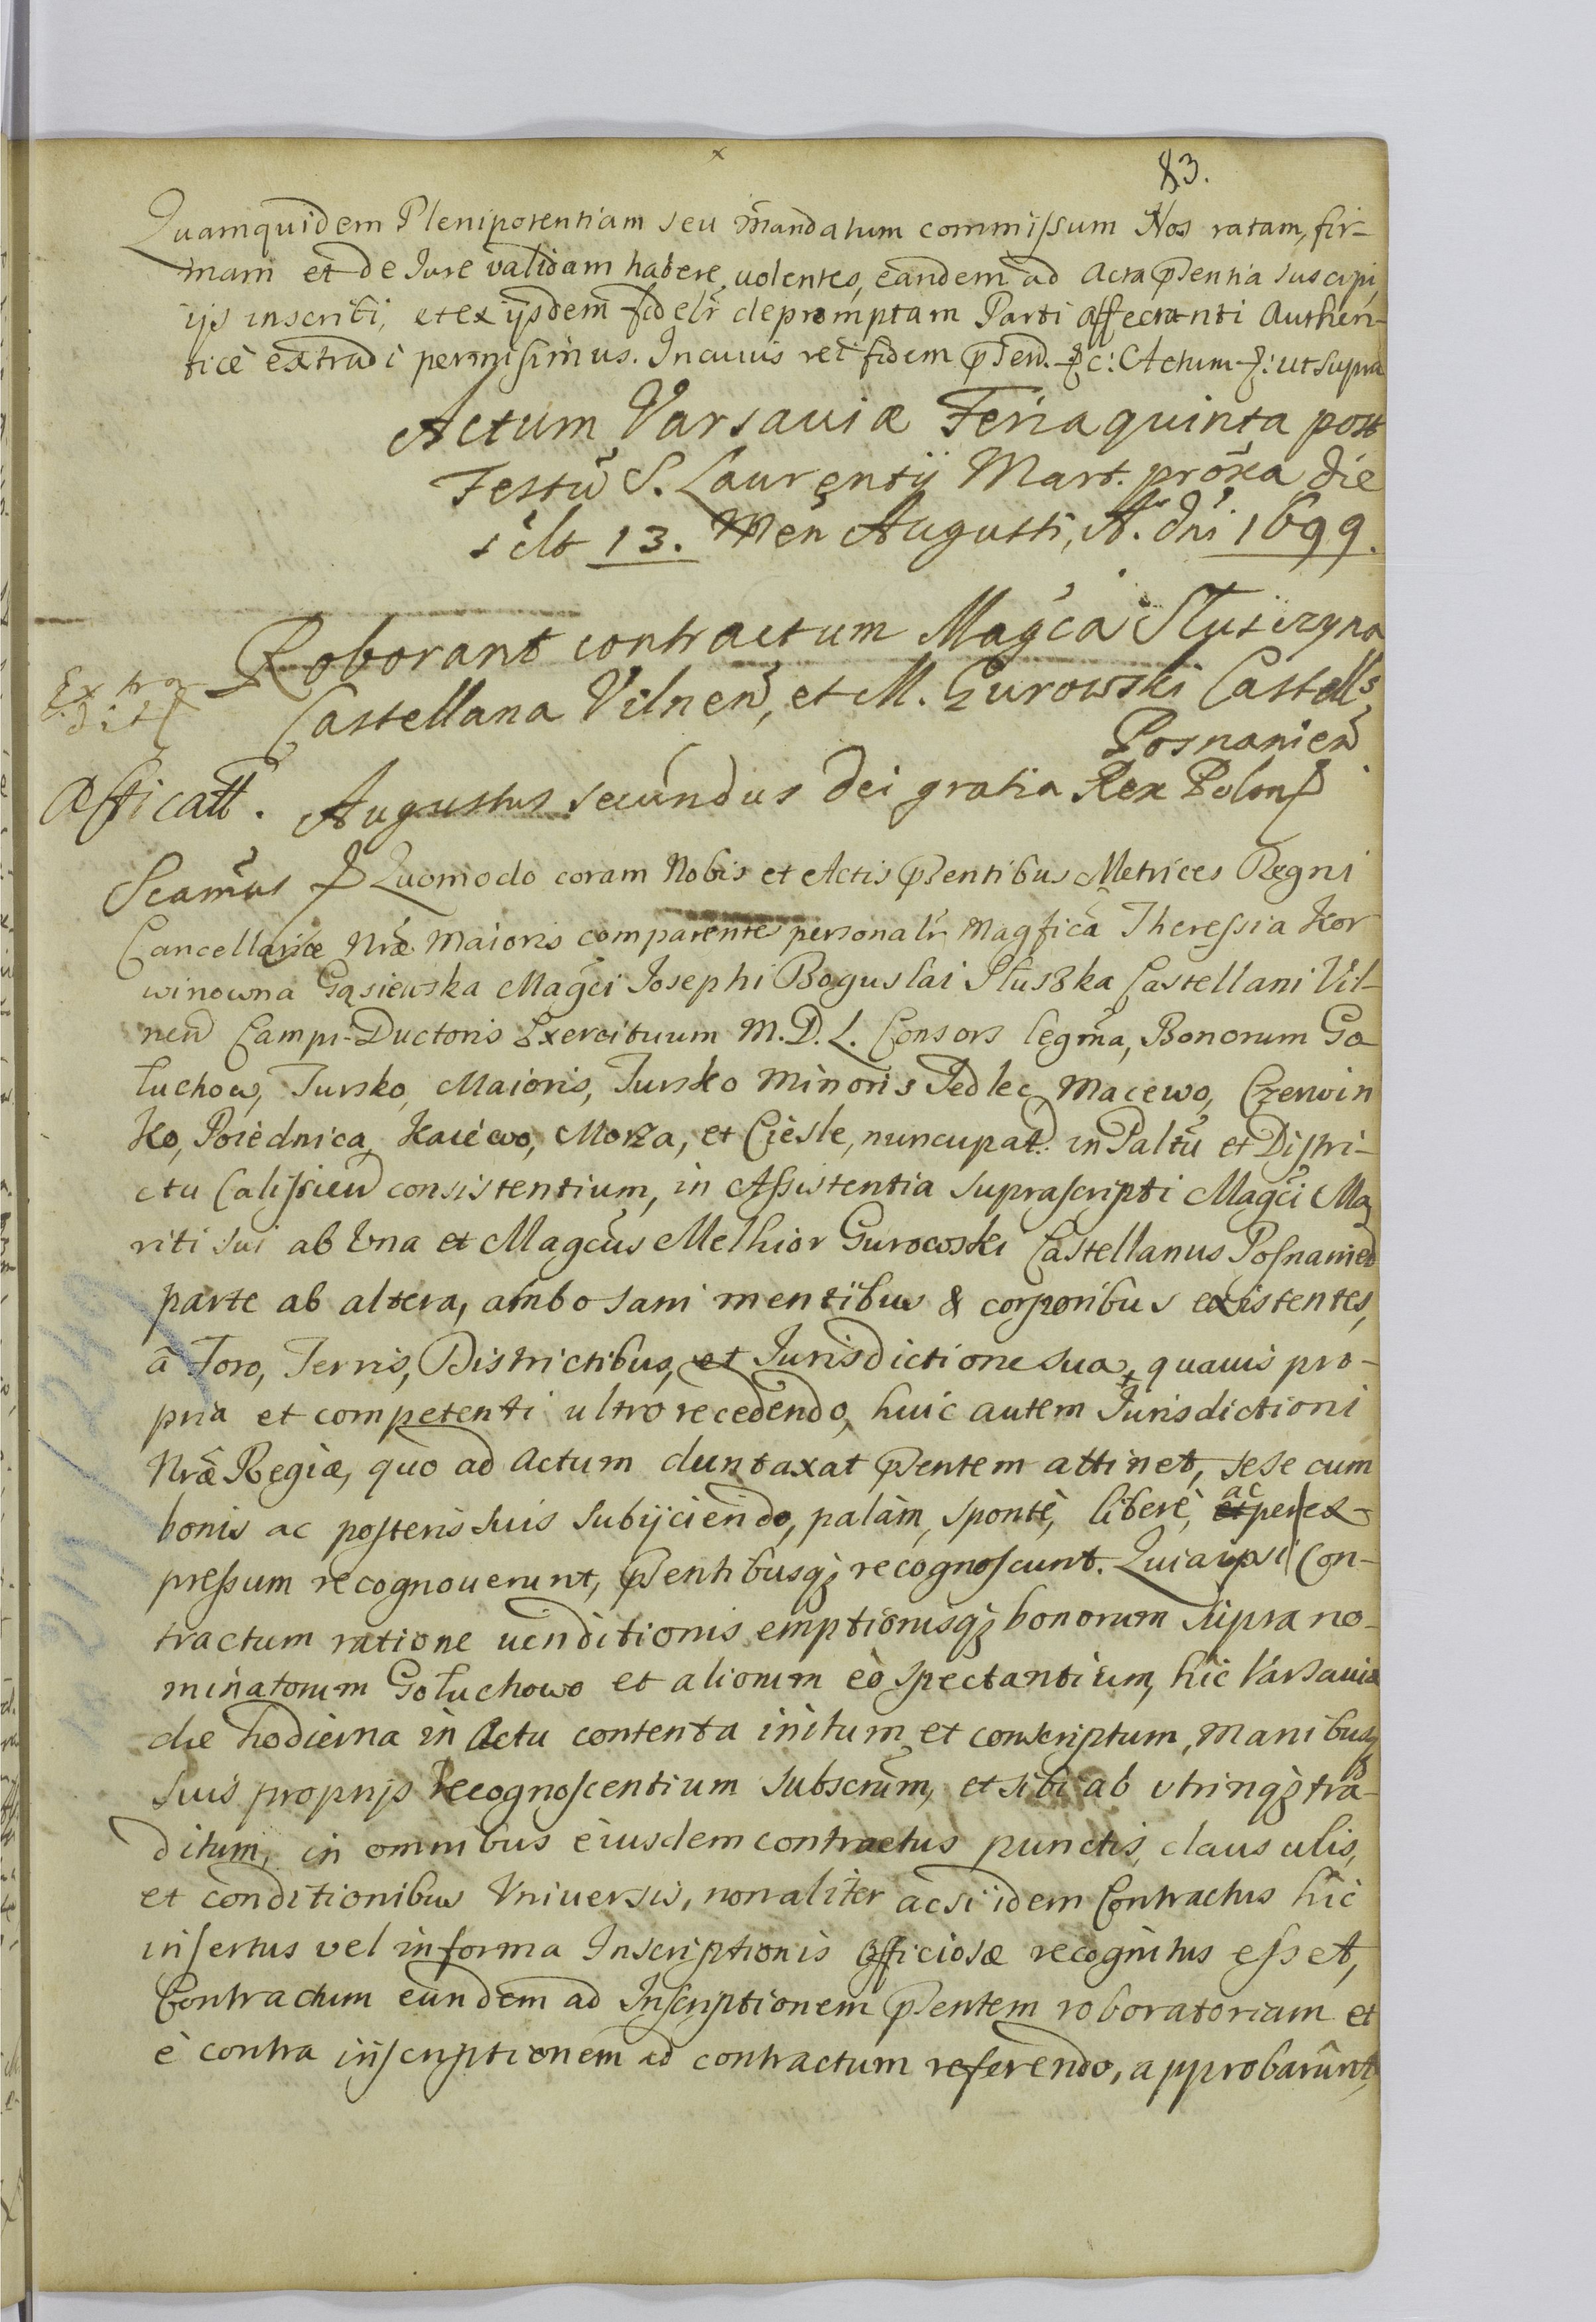 83.
Quamquidem Plenipotentiam seu mandatum commissum Nos ratam, fir-
mam et de Iure validam habere uolentes, eandem ad Acta pñtentia suscipi,
ijs inscribi, et ex ijsdem fidelr depromptam Parti affectanti Authen-
ticè extradi permisimus. In cuius rei fidem pñten. &c: Actum &: ut supra
Actum Varsauiæ Feria quinta post
Festũ S. Laurentij Mart. prõxa die
silt 13. Men Augusti, A. dni 1699.
Roborant contractum Magca Sluszyna
Extra
dit
Castellana Vilneñ, et M. Gurowski Castells
Posnanieñ
Augustus secundus Dei gratia Rex Polon
Scamus Quomodo coram Nobis et Actis pñtentibus Metrices Regni
Cancellariæ Nræ Maioris comparente personalr Magfica Theressia Kor
winowna Gąsiewska Magci Iosephi Boguslai Sluszka Castellani Vil-
neñ Campi-Ductoris Exercituum M. D. L. Consors legma, Bonorum Go
łuchow, Tursko Maioris, Tursko Minoris Jedlec, Macewo, Czerwin
ko, Poiednica, Kaiewo, Morza, et Cieśle, nuncupat. in Paltũ et Distri-
ctu Calissień consistentium, in Assistentia suprascripti Magci Ma
riti sui ab una et Magcus Melhior Gurowski Castellanus Posnanień
parte ab altera, ambo sani mentibus & corporibus existentes,
à Foro, Terris, Districtibus, et Iurisdictione sua, quauis pro-
pria et competenti ultro recedendo, huic autem Iurisdictioni
Nræ Regiæ, quo ad Actum duntaxat pñtentem attinet, sese cum
bonis ac posteris suis subijciendo, palàm, spontè, liberè, et ac per ex-
pressum recognouerunt, pñtentibusq; recognoscunt. Quia ipsi Con-
tractum ratione uenditionis emptionisq; bonorum supra no-
minatorum Gołuchowo et aliorum eò spectantium, hic Varsauiæ
die hodierna in Actu contenta initum et conscriptum, manibus
suis proprijs Recognoscentium subscrum, et sibi ab utrinq; tra-
ditum, in omnibus eiusdem contractus punctis, clausulis,
et conditionibus Vniuersis, non aliter acsi idem Contractus hic
insertus vel in forma Inscriptionis officiosæ recognitus esset,
Contractum eundem ad Inscriptionem pñtentem roboratoriam et
è contra inscriptionem ad contractum referendo, approbarunt,